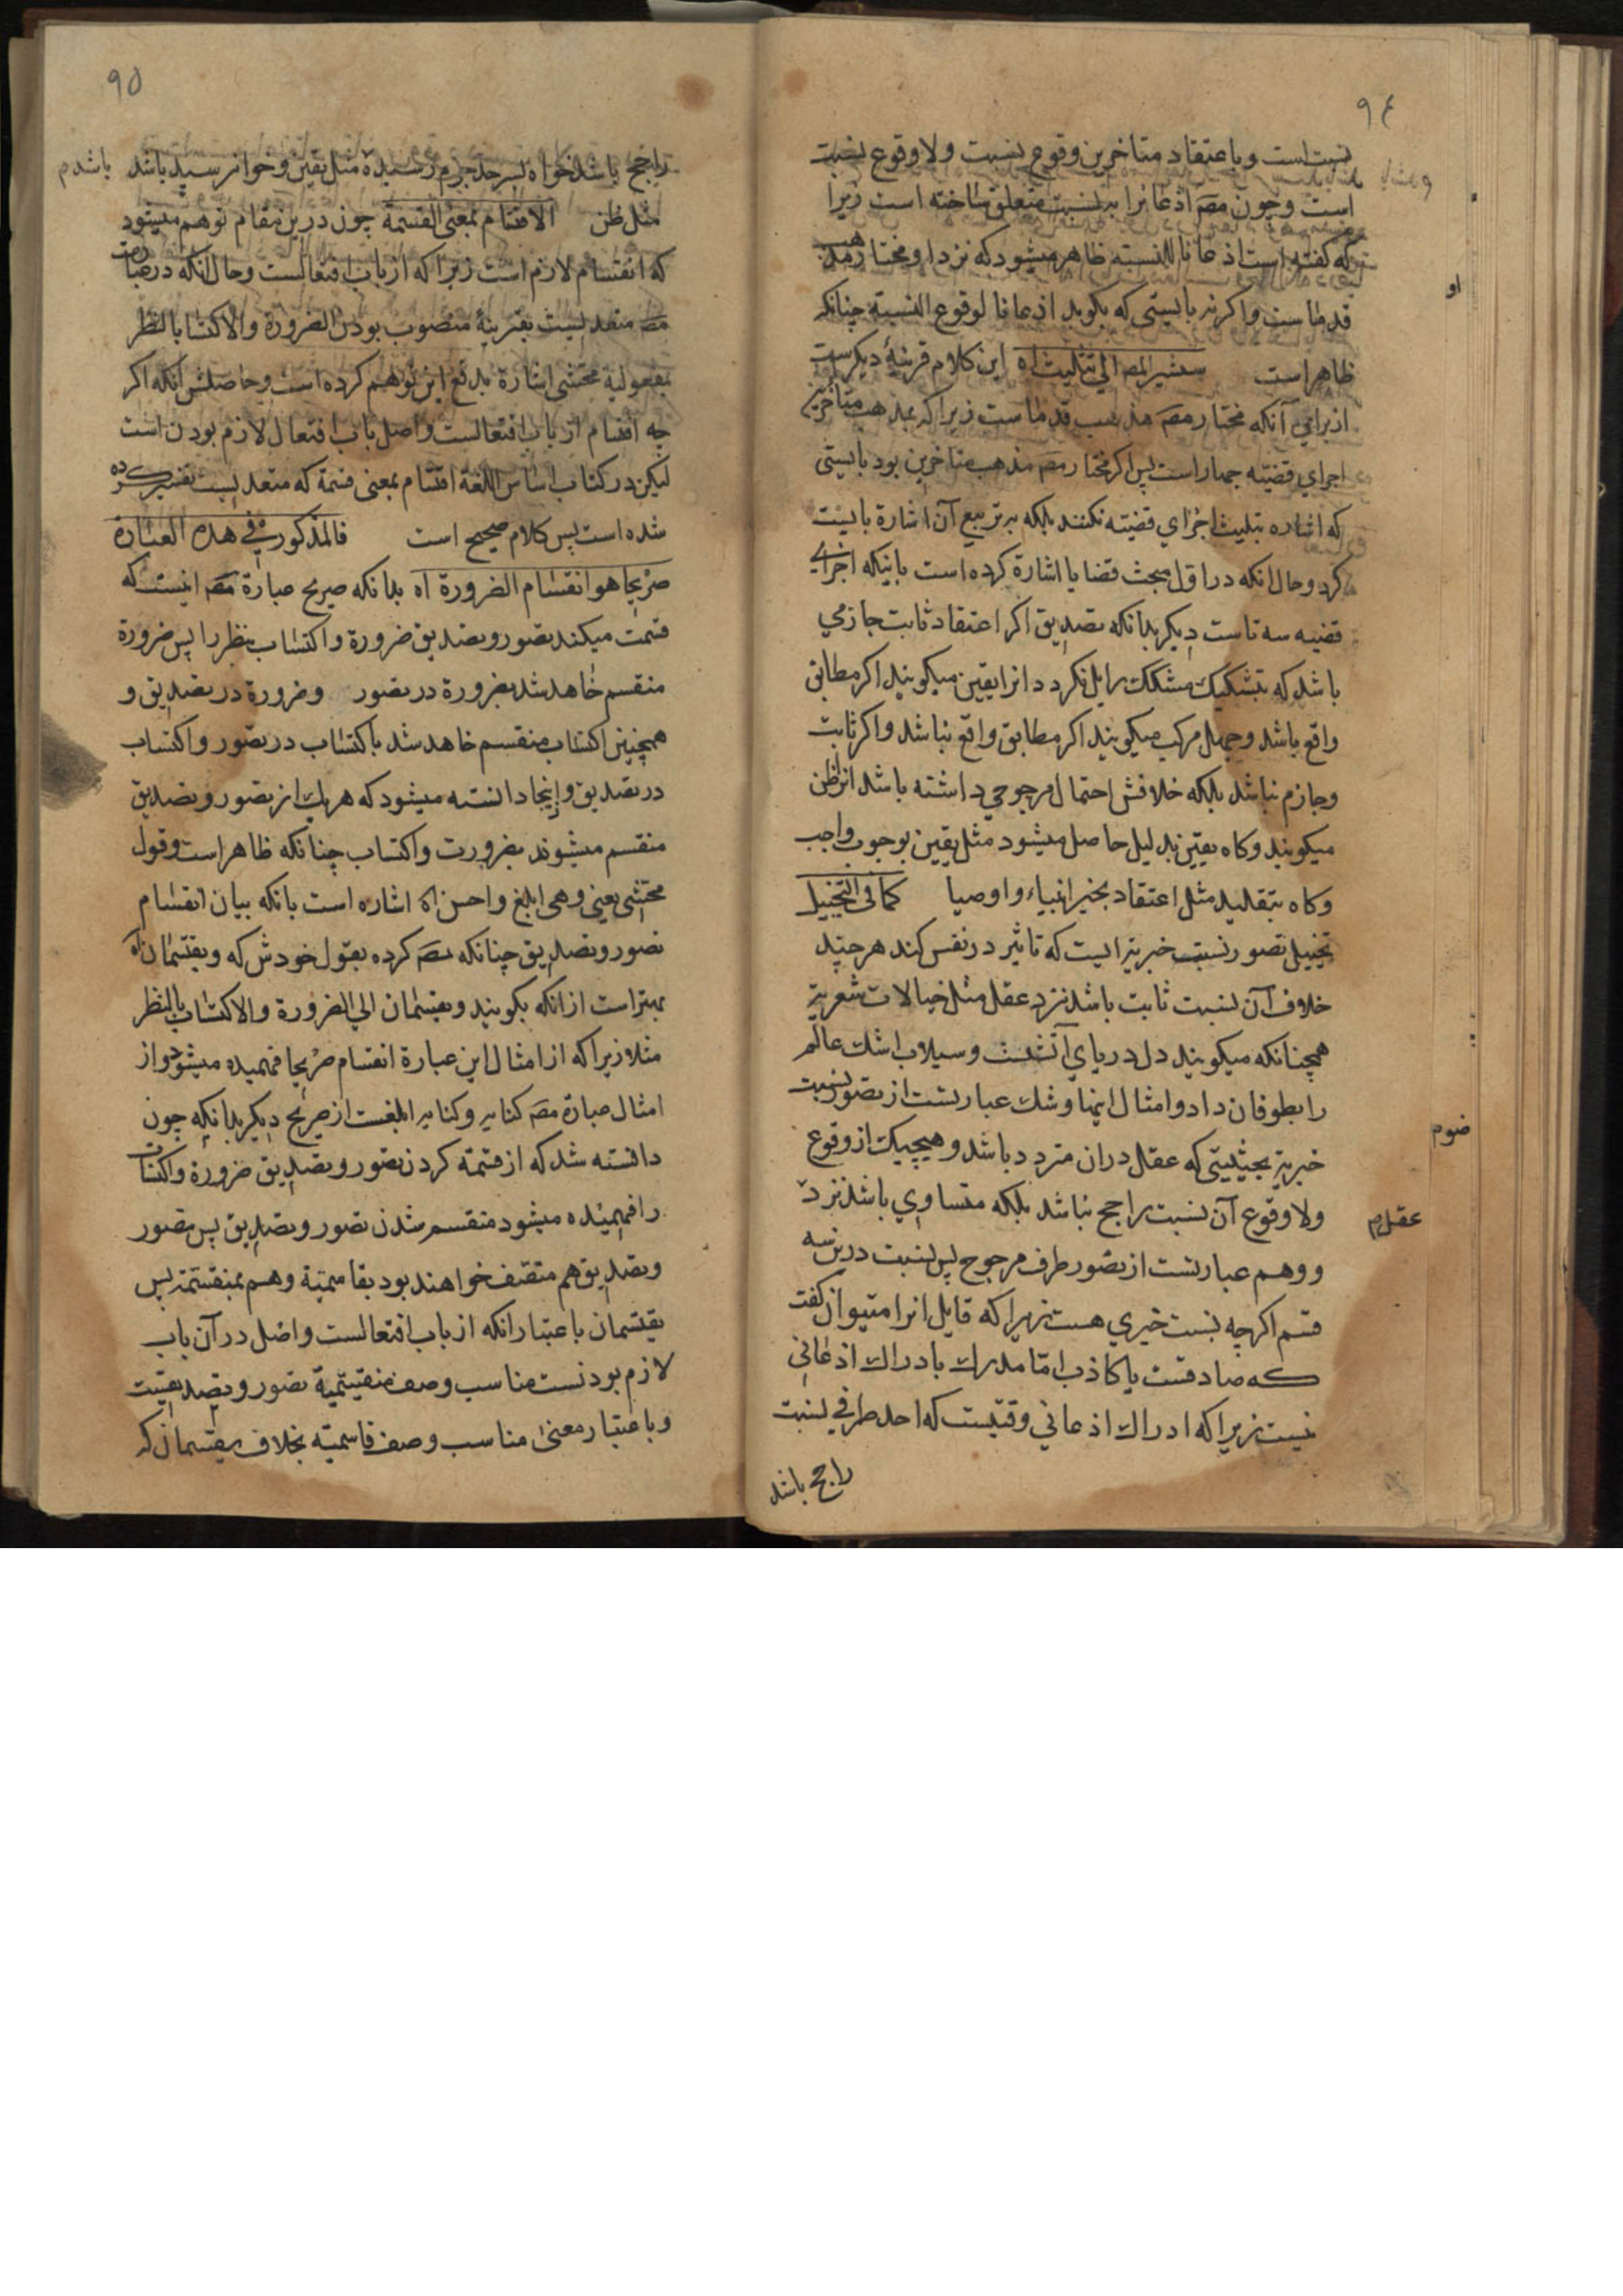 ۹۴
نسبت است و باعتقاد متاخرین وقوع نسبت ولا وقوع نسبت
است و چون مصَ اذعانرا به نسبت متعلق ساخته است زیرا
که کفته است اذعانا للنسبته ظاهر میشود که نزد او مختار مذهب
قدماست و اکرنه بایستی که بکوید اذعانا لوقوع النسبته چنانکه
ظاهر است سیشیر المصَ الی تثلیث اه این کلام قرینهٔ دیکرست
از برای آنکه مختار مصَ مذهب قدماست زیرا که بمذهب متأخرین
اجزای قضیّه چهار است پس اکر مختار مصَ مذهب متاخرین بود بایستی
که اشاره بتلیث اجزای قضیّه نکند بلکه به تربیع آن اشارة بایست
کرد و حال انکه در اوّل مبحث قضایا اشارة کرده است باینکه اجزای
قضیه سه تاست دیکر بدانکه تصدیق اکر اعتقاد ثابت جازمی
باشد که بتشکیک مشکک زایل نکردد انرا یقین میکویند اکر مطابق
واقع باشد و جهل مرکب میکویند اکر مطابق واقع نباشد و اکر ثابت
و جازم نباشد بلکه خلافش احتمال مرجوحی داشته باشد انرا ظن
میکویند و کاه یقین بدلیل حاصل میشود مثل یقین بوجوب واجب
و کاه بتقلید مثل اعتقاد بخیر انبیاء و اوصیا کما فی التخییل
تخییل تصور نسبت خبریه ایست که تاثیر در نفس کند هر چند
خلاف آن نسبت ثابت باشد نزد عقل مثل خیالات شعریه
همچنانکه میکویند دل دریای آتشست و سیلاب اشک عالم
را بطوفان داد و امثال اینها و شک عبارتست از تصور نسبت
خبریه بحیثیتی که عقل دران متردد باشد و هیچیک از وقوع
ولا وقوع آن نسبت راجح نباشد بلکه متساوی باشد نزد
عقل م
و وهم عبارتست از تصور طرف مرجوح پس نسبت درین سه
قسم اکرچه نسبت خبری هست زیرا که قایل انرا میتوان کفت
که صادقست یا کاذب امّا مدرک بادراک اذعانی
نیست زیرا که ادراک اذعانی وقتیست که احد طرفی نسبت
راجح باشد
۹۵
راجح باشد خواه بسر حد جزم رسیده مثل یقین و خواه نرسیده باشد
باشد م
مثل ظن الاقتسام بمعنی القسمة چون درین مقام توهم میشود
که اقتسام لازم است زیرا که از باب افتعالست و حال انکه در عبارت
مصَ متعدیست بقرینهٔ منصوب بودن الضرورة والاکتساب بالنظر
بمفعولیة محشی اشارة بدفع این توهم کرده است و حاصلش آنکه اکر
چه اقتسام از باب افتعالست و اصل باب افتعال لازم بودن است
لیکن در کتاب اساس اللغة اقتسام بمعنی قسمة که متعدیست تفسیر کرده
شده است پس کلام صحیح است فالمذکور فی هذه العبارة
صریحا هو انقسام الضرورة اه بدانکه صریح عبارة مصَ اینست که
قسمت میکند تصور و تصدیق ضرورة و اکتساب بنظر را پس ضرورة
منقسم خاهد شد بضرورة در تصور و ضرورة در تصدیق و
همچنین اکتساب منقسم خاهد شد باکتساب در تصور و اکتساب
در تصدیق و اینجا دانسته میشود که هر یک از تصور و تصدیق
منقسم میشوند بضرورت و اکتساب چنانکه ظاهر است و قول
محشی یعنی وهی ابلغ و احسن اه اشاره است بانکه بیان انقسام
تصور و تصدیق چنانکه مصَ کرده بقول خودش که ویقتسمان اه
بهتر است از انکه بکویند وینقسمان الی الضرورة والاکتساب بالنظر
مثلا زیرا که از امثال این عبارة انقسام صریحا فهمیده میشود و از
امثال عبارة مصَ کنایه و کنایه ابلغست از صریح دیکر بدانکه چون
دانسته شد که از قسمة کردن تصور و تصدیق ضرورة و اکتساب
را فهمیده میشود منقسم شدن تصور و تصدیق پس تصور
و تصدیق هم متصف خواهند بود بقاسمیّة و هم بمنقسمیة پس
یقتسمان باعتبار انکه از باب افتعالست و اصل در آن باب
لازم بودنست مناسب وصف منقسمیّة تصور و تصدیقست
و باعتبار معنی مناسب وصف قاسمیّة بخلاف ینقسمان که